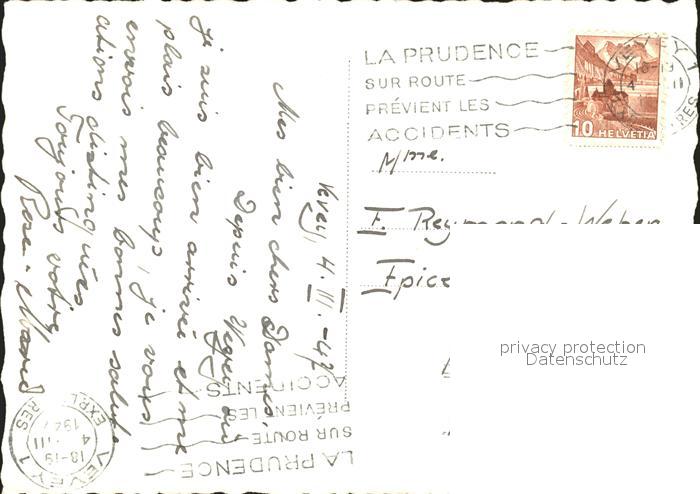 Vevey, 4. III. - 47
Mes bien chers Dames,
Depuis Vevey où
je suis bien arrivée et me
plais beaucoup, je vous
envois mes bonnes salut-
ations distinguées
Toujours votre
Rose-Marie
LA PRUDENCE
SUR ROUTE
PRÉVIENT LES
ACCIDENTS
VEVEY 1
18-19
10 HELVETIA
Mme.
F. Reymond-Weber
Epice
privacy protection
Datenschutz
LA PRUDENCE
SUR ROUTE
PRÉVIENT LES
ACCIDENTS
VEVEY 1
18-19
4. III
1947
EXP. LETTRES